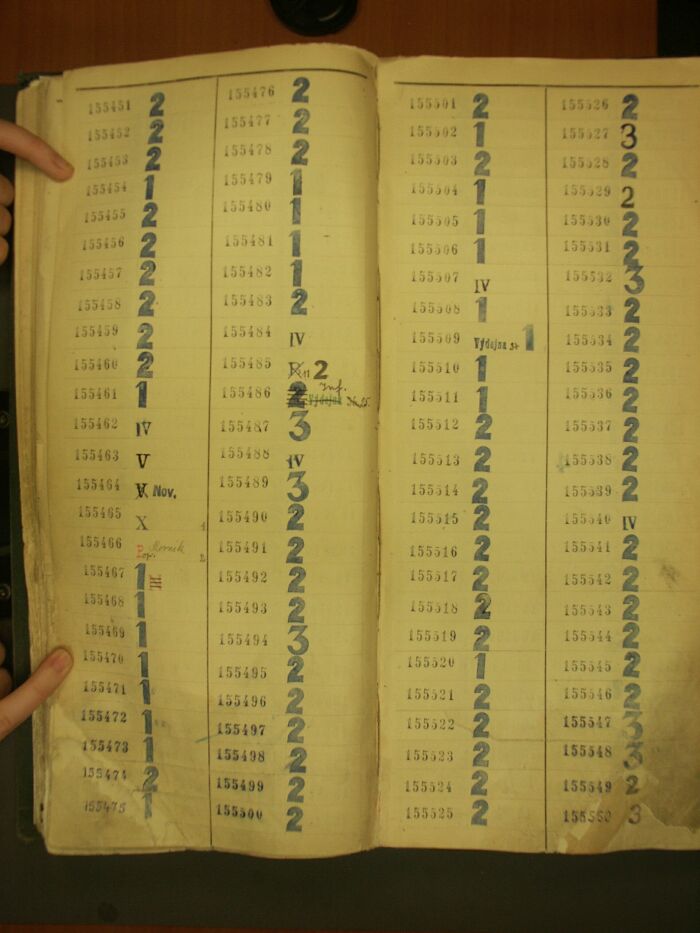 155451 2
155452 2
155453 2
155454 1
155455 2
155456 2
155457 2
155458 2
155459 2
155460 2
155461 1
155462 IV
155463 V
155464 V Nov.
155465 X 1
155466 P. op. 2
155467 1 III
155468 1
155469 1
155470 1
155471 1
155472 1
155473 1
155474 2
155475 1
155476 2
155477 2
155478 2
155479 1
155480 1
155481 1
155482 1
155483 2
155484 IV
155485 2
155486 2 Inf. Výdejna
155487 3
155488 IV
155489 3
155490 2
155491 2
155492 2
155493 2
155494 3
155495 2
155496 2
155497 2
155498 2
155499 2
155500 2
155501 2
155502 1
155503 2
155504 1
155505 1
155506 1
155507 IV
155508 1
155509 Výdejna 1
155510 1
155511 1
155512 2
155513 2
155514 2
155515 2
155516 2
155517 2
155518 2
155519 2
155520 1
155521 2
155522 2
155523 2
155524 2
155525 2
155526 2
155527 3
155528 2
155529 2
155530 2
155531 2
155532 3
155533 2
155534 2
155535 2
155536 2
155537 2
155538 2
155539 2
155540 IV
155541 2
155542 2
155543 2
155544 2
155545 2
155546 2
155547 3
155548 3
155549 2
155550 3